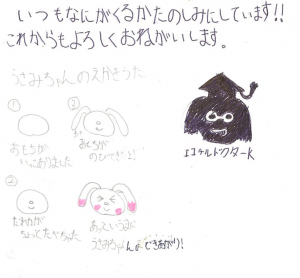 いつもなにがくるかたのしみにしています!!
これからもよろしくおねがいします。
うさみちゃんのえかきうた
①
おもちが
いっこありました
②
おもちが
のびて
②
だれかが
ちょってたべちゃった
あっというまに
うさみちゃんのできあがり!
エコチルドクターK